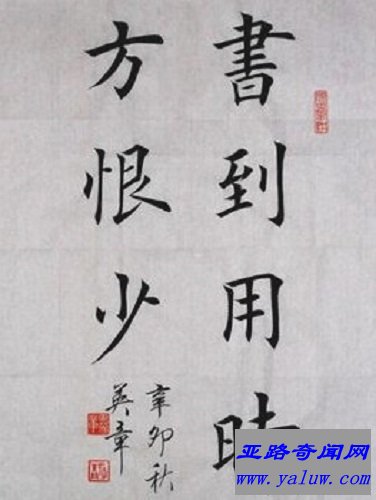 書到用時
方恨少
辛卯秋
英章
亚路奇闻网
www.yaluw.com